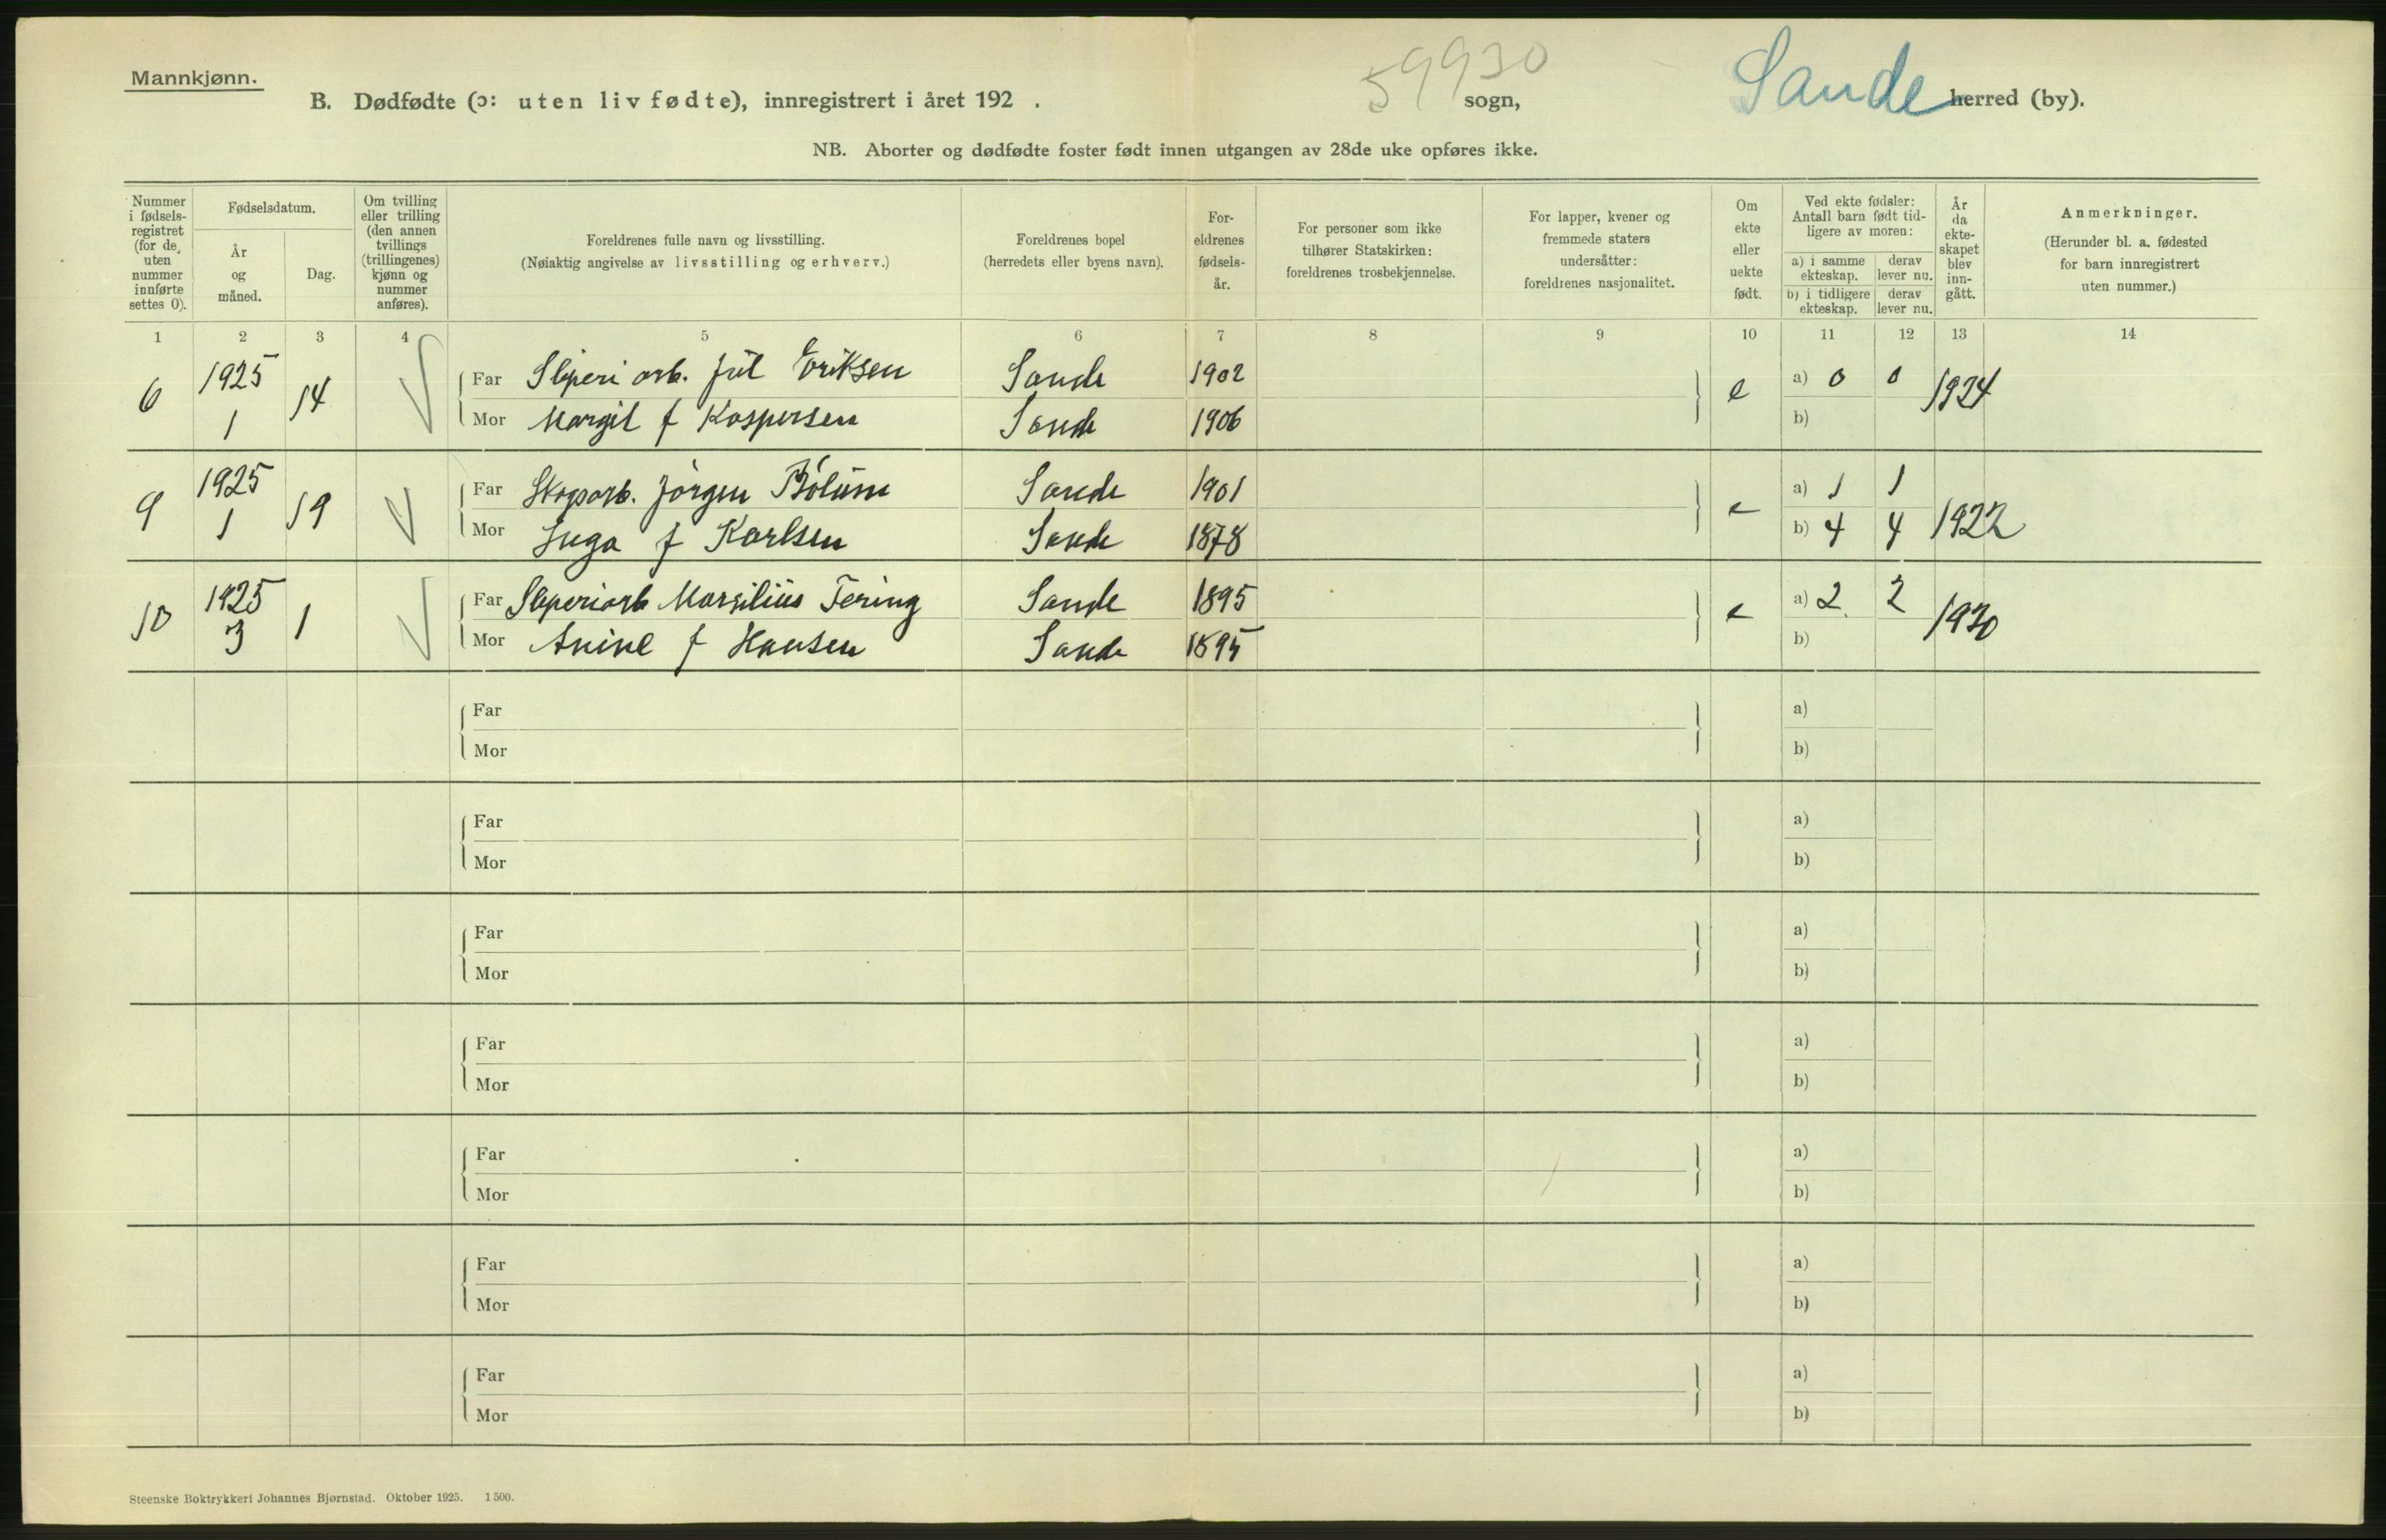 Mannkjønn.
59930
Sande
B. Dødfødte (ɔ: uten liv fødte), innregistrert i året 192 . sogn, herred (by).
NB. Aborter og dødfødte foster født innen utgangen av 28de uke opføres ikke.
Nummer i fødsels-registret (for de uten nummer innførte settes 0).
Fødselsdatum.
År og måned.
Dag.
Om tvilling eller trilling (den annen tvillings (trillingenes) kjønn og nummer anføres).
Foreldrenes fulle navn og livsstilling.
(Nøiaktig angivelse av livsstilling og erhverv.)
Foreldrenes bopel
(herredets eller byens navn).
For-eldrenes fødsels-år.
For personer som ikke tilhører Statskirken: foreldrenes trosbekjennelse.
For lapper, kvener og fremmede staters undersåtter: foreldrenes nasjonalitet.
Om ekte eller uekte født.
Ved ekte fødsler: Antall barn født tid-ligere av moren:
a) i samme ekteskap. derav lever nu.
b) i tidligere ekteskap. derav lever nu.
År da ekte-skapet blev inn-gått.
Anmerkninger.
(Herunder bl. a. fødested for barn innregistrert uten nummer.)
1 2 3 4 5 6 7 8 9 10 11 12 13 14
6 1925 1 14 Far Sliperi arb. Jul Eriksen Sande 1902 e a) 0 0 1924
Mor Margit f Kaspersen Sande 1906 b)
9 1925 1 19 Far Skogsarb. Jörgen Bólum Sande 1901 e a) 1 1 1922
Mor Inga f Karlsen Sande 1878 b) 4 4
10 1925 3 1 Far Sliperiarb Marsilius Tering Sande 1895 e a) 2 2 1920
Mor Anine f Hansen Sande 1895 b)
Far a)
Mor b)
Far a)
Mor b)
Far a)
Mor b)
Far a)
Mor b)
Far a)
Mor b)
Far a)
Mor b)
Far a)
Mor b)
Steenske Boktrykkeri Johannes Bjørnstad. Oktober 1925. 1500.